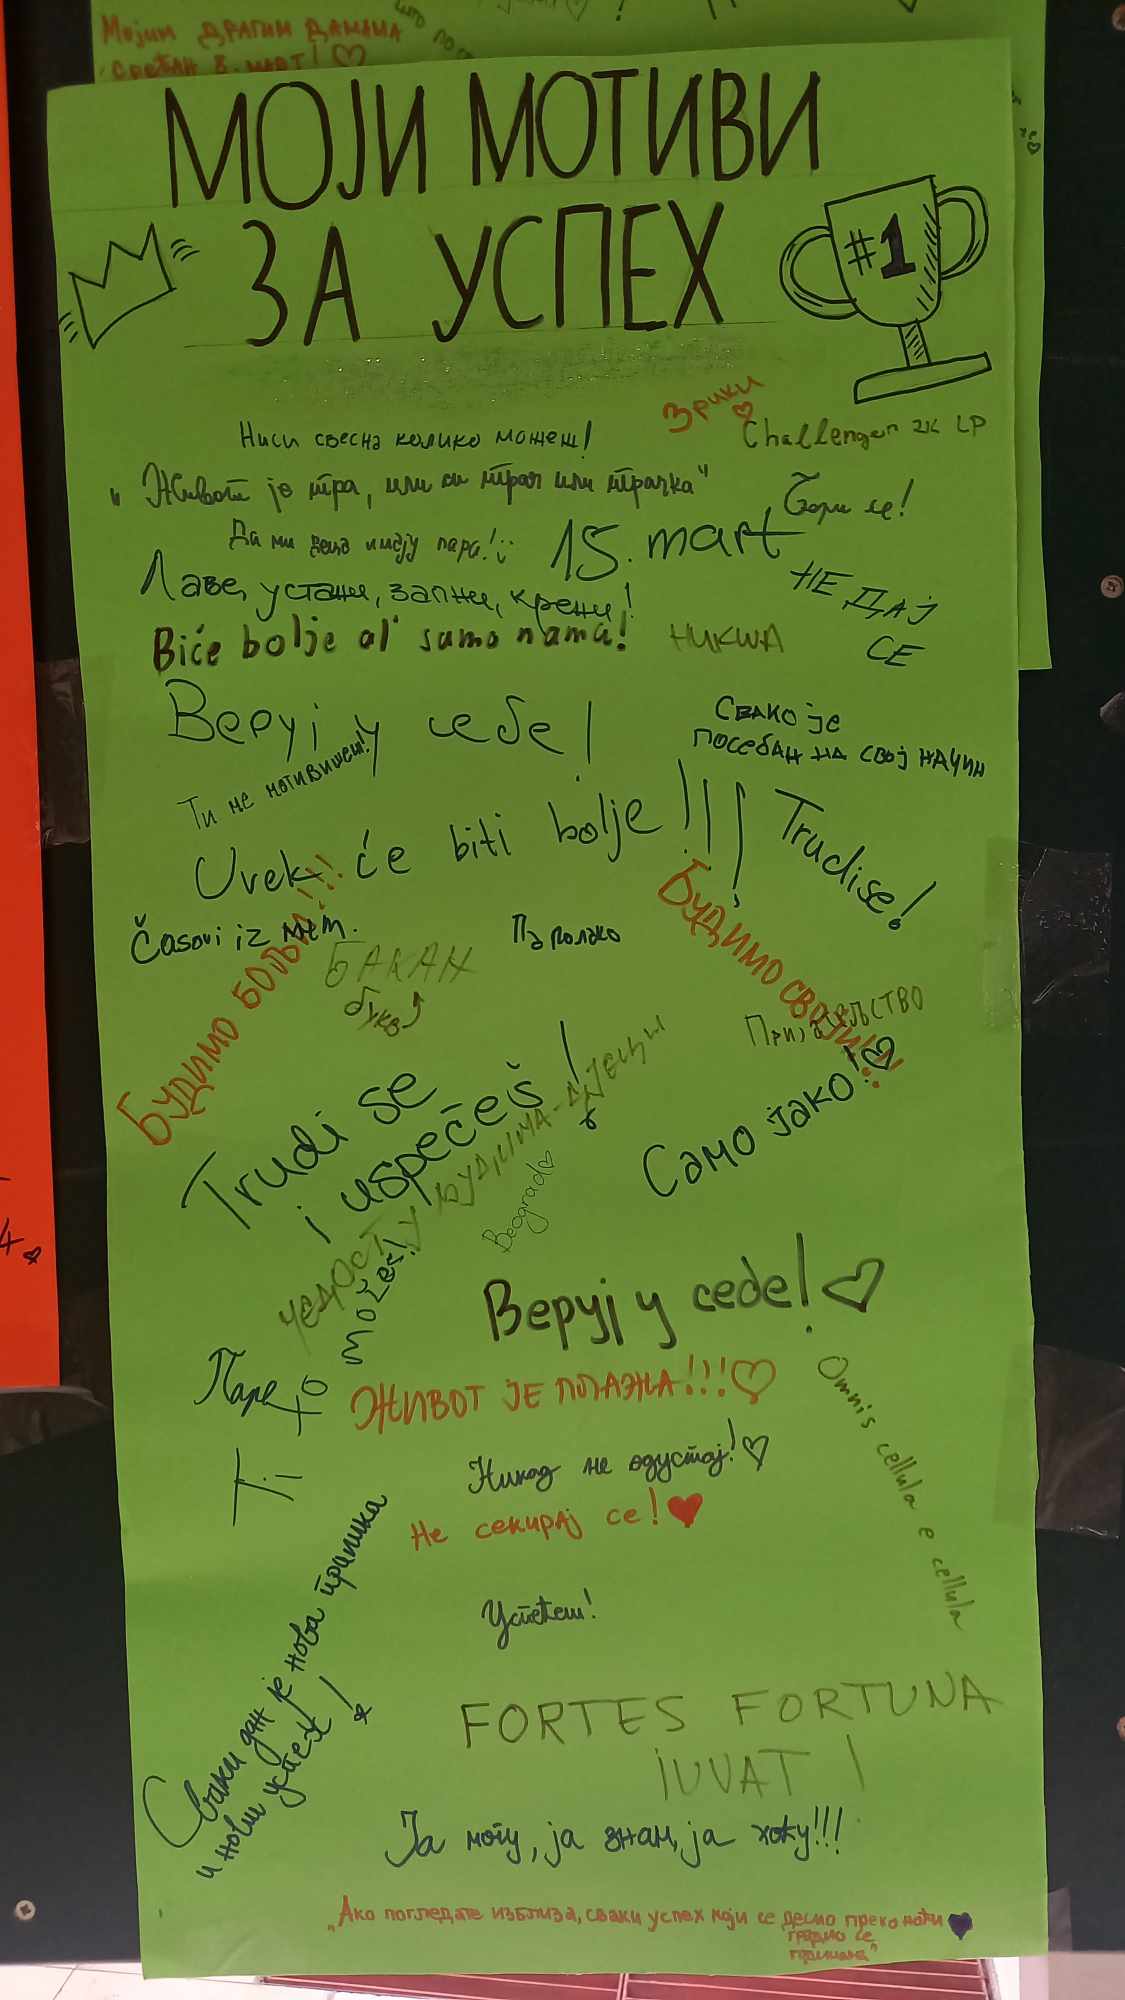 Мојим драгим дамама
срећан 8. март!
МОЈИ МОТИВИ
ЗА УСПЕХ
#1
Зрики
Ниси свесна колико можеш!
Challenger 2k LP
"Живот је трка, или си тркач или трачка"
Бори се!
Да ми деца имају пара!
15. mart
Лаве, устани, запни, крени!
НЕ ДАЈ
СЕ
Biće bolje al' samo nama!
НИКША
Веруј у себе!
СВАКО ЈЕ
ПОСЕБАН НА СВОЈ НАЧИН
Ти ме мотивишеш!
Uvek će biti bolje!!!
Trudise!
Časovi iz мем.
Па полако
БУДИМО БОЉИ!!!
БУДИМО СВОЈИ!!!
БАКАН
буква
Пријатељство
Trudi se
i uspećeš!
Само јако!
Beograd
Веруј у себе!
Паре
Ti to možeš!
ЖИВОТ ЈЕ ПОТАЖА!!!
Omnis cellula e cellula
Никад не одустај!
Не секирај се!
Успећеш!
Сваки дан је нова прилика
и нови успех!
FORTES FORTUNA
IUVAT!
Ја могу, ја знам, ја хоћу!!!
"Ако погледате изблиза, сваки успех који се десио преко ноћи
градио се
годинама"